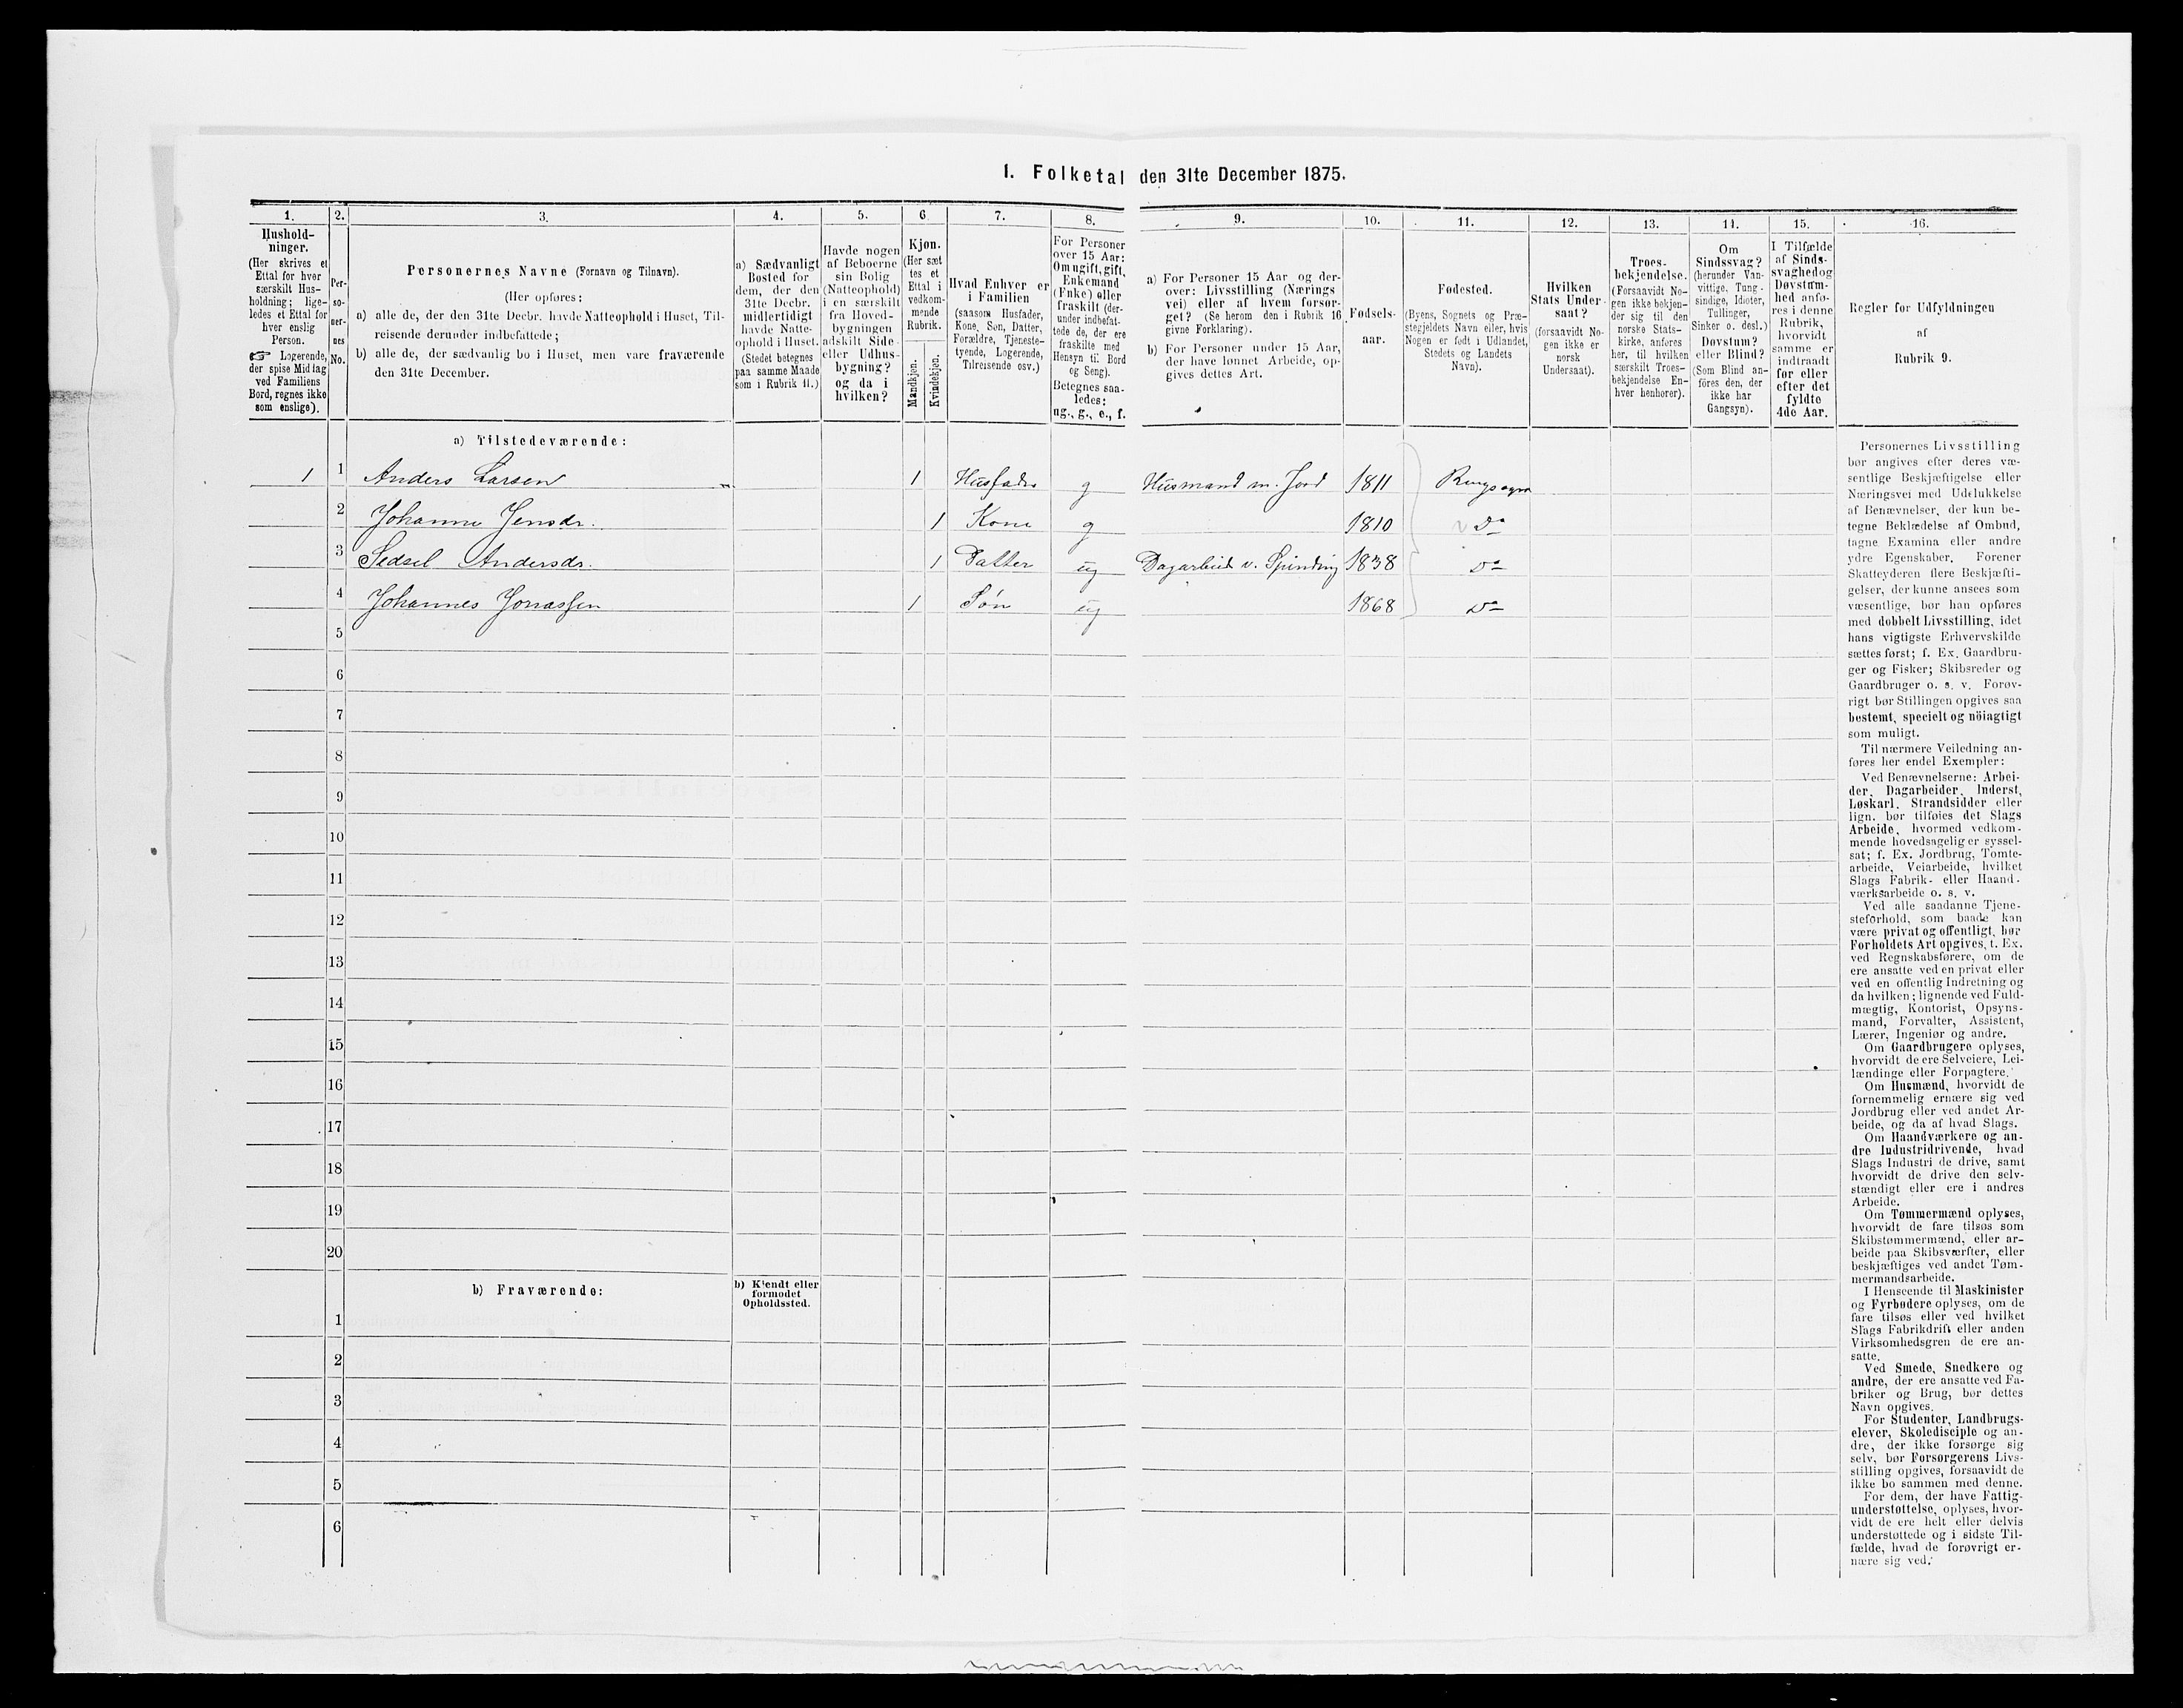 1. Folketal den 31te December 1875.
1. 2. 3. 4. 5. 6. 7. 8. 9. 10. 11. 12. 13. 14. 15. 16.
Hushold-
ninger.
(Her skrives et
Ettal for hver
særskilt Hus-
holdning; lige-
ledes et Ettal for
hver enslig
Person.
☞ Logerende,
der spise Middag
ved Familiens
Bord, regnes ikke
som enslige).
Per-
so-
ner-
nes
No.
Personernes Navne (Fornavn og Tilnavn).
(Her opføres:
a) alle de, der den 31te Decbr. havde Natteophold i Huset, Til-
reisende derunder indbefattede;
b) alle de, der sædvanlig bo i Huset, men vare fraværende
den 31te December.
a) Sædvanligt
Bosted for
dem, der den
31te Decbr.
midlertidigt
havde Natte-
ophold i Huset.
(Stedet betegnes
paa samme Maade
som i Rubrik 11.)
Havde nogen
af Beboerne
sin Bolig
(Natteophold)
i en særskilt
fra Hoved-
bygningen
adskilt Side-
eller Udhus-
bygning?
og da i
hvilken?
Kjøn.
(Her sæt
tes et
Ettal i
vedkom-
mende
Rubrik.
Mandkjøn.
Kvindekjøn.
Hvad Enhver er
i Familien
(saasom Husfader,
Kone, Søn, Datter,
Forældre, Tjeneste-
tyende, Logerende,
Tilreisende osv.)
For Personer
over 15 Aar:
Om ugift, gift,
Enkemand
(Enke) eller
fraskilt (der-
under indbefat-
tede de, der ere
fraskilte med
Hensyn til Bord
og Seng).
Betegnes saa-
ledes:
ug., g., e., f.
a) For Personer 15 Aar og der-
over: Livsstilling (Nærings
vei) eller af hvem forsør-
get? (Se herom den i Rubrik 16
givne Forklaring).
b) For Personer under 15 Aar,
der have lønnet Arbeide, op-
gives dettes Art.
Fødsels-
aar.
Fødested.
(Byens, Sognets og Præ-
stegjeldets Navn eller, hvis
Nogen er født i Udlandet,
Stedets og Landets
Navn).
Hvilken
Stats Under-
saat?
(forsaavidt No-
gen ikke er
norsk
Undersaat).
Troes-
bekjendelse.
(Forsaavidt No-
gen ikke bekjen-
der sig til den
norske Stats-
kirke, anføres
her, til hvilken
særskilt Troes-
bekjendelse En-
hver henhører).
Om
Sindssvag?
(herunder Van-
vittige, Tung-
sindige, Idioter,
Tullinger,
Sinker o. desl.)
Døvstum?
eller Blind?
(Som Blind an-
føres den, der
ikke har
Gangsyn).
I Tilfælde
af Sinds-
svaghed og
Døvstum-
hed anfø-
res i denne
Rubrik,
hvorvidt
samme er
indtraadt
før eller
efter det
fyldte
4de Aar.
Regler for Udfyldningen
af
Rubrik 9.
a) Tilstedeværende:
1 1 Anders Larsen 1 Husfader g Husmand m. Jord 1811 Ringsager
2 Johanne Jensdr. 1 Kone g 1810 Do
3 Sedsel Andersdr. 1 Datter ug Dagarbeid v. Spinding 1838 Do
4 Johannes Jonassen 1 Søn ug 1868 Do
5
6
7
8
9
10
11
12
13
14
15
16
17
18
19
20
b) Fraværende:
b) Kjendt eller
formodet
Opholdssted.
1
2
3
4
5
6
Personernes Livsstilling
bør angives efter deres væ-
sentlige Beskjæftigelse eller
Næringsvei med Udelukkelse
af Benævnelser, der kun be-
tegne Beklædelse af Ombud,
tagne Examina eller andre
ydre Egenskaber. Forener
Skatteyderen flere Beskjæfti-
gelser, der kunne ansees som
væsentlige, bør han opføres
med dobbelt Livsstilling, idet
hans vigtigste Erhvervskilde
sættes først; f. Ex. Gaardbru-
ger og Fisker; Skibsreder og
Gaardbruger o. s. v. Forøv-
rigt bør Stillingen opgives saa
bestemt, specielt og nöiagtigt
som muligt.
Til nærmere Veiledning an-
føres her endel Exempler:
Ved Benævnelserne: Arbei-
der, Dagarbeider, Inderst,
Løskarl, Strandsidder eller
lign. bør tilføies det Slags
Arbeide, hvormed vedkom-
mende hovedsagelig er syssel-
sat; f. Ex. Jordbrug, Tomte-
arbeide, Veiarbeide, hvilket
Slags Fabrik- eller Haand-
værksarbeide o. s. v.
Ved alle saadanne Tjene-
steforhold, som baade kan
være privat og offentligt, bør
Forholdets Art opgives, t. Ex.
ved Regnskabsførere, om de
ere ansatte ved en privat eller
ved en offentlig Indretning og
da hvilken; lignende ved Fuld-
mægtig, Kontorist, Opsyns-
mand, Forvalter, Assistent,
Lærer, Ingeniør og andre.
Om Gaardbrugere oplyses,
hvorvidt de ere Selveiere, Lei-
lændinge eller Forpagtere.
Om Husmænd, hvorvidt de
fornemmelig ernære sig ved
Jordbrug eller ved andet Ar-
beide, og da af hvad Slags.
Om Haandværkere og an-
dre Industridrivende, hvad
Slags Industri de drive, samt
hvorvidt de drive den selv-
stændigt eller ere i andres
Arbeide.
Om Tømmermænd oplyses,
hvorvidt de fare tilsøs som
Skibstømmermænd, eller ar-
beide paa Skibsværfter, eller
beskjæftiges ved andet Tøm-
mermandsarbeide.
I Henseende til Maskinister
og Fyrbødere oplyses, om de
fare tilsøs eller ved hvilket
Slags Fabrikdrift eller anden
Virksomhedsgren de ere an-
satte.
Ved Smede, Snedkere og
andre, der ere ansatte ved Fa-
briker og Brug, bør dettes
Navn opgives.
For Studenter, Landbrugs-
elever, Skoledisciple og an-
dre, der ikke forsørge sig
selv, bør Forsørgerens Livs-
stilling opgives, forsaavidt de
ikke bo sammen med denne.
For dem, der have Fattig-
understøttelse, oplyses, hvor-
vidt de ere helt eller delvis
understøttede og i sidste Til-
fælde, hvad de forøvrigt er-
nære sig ved.